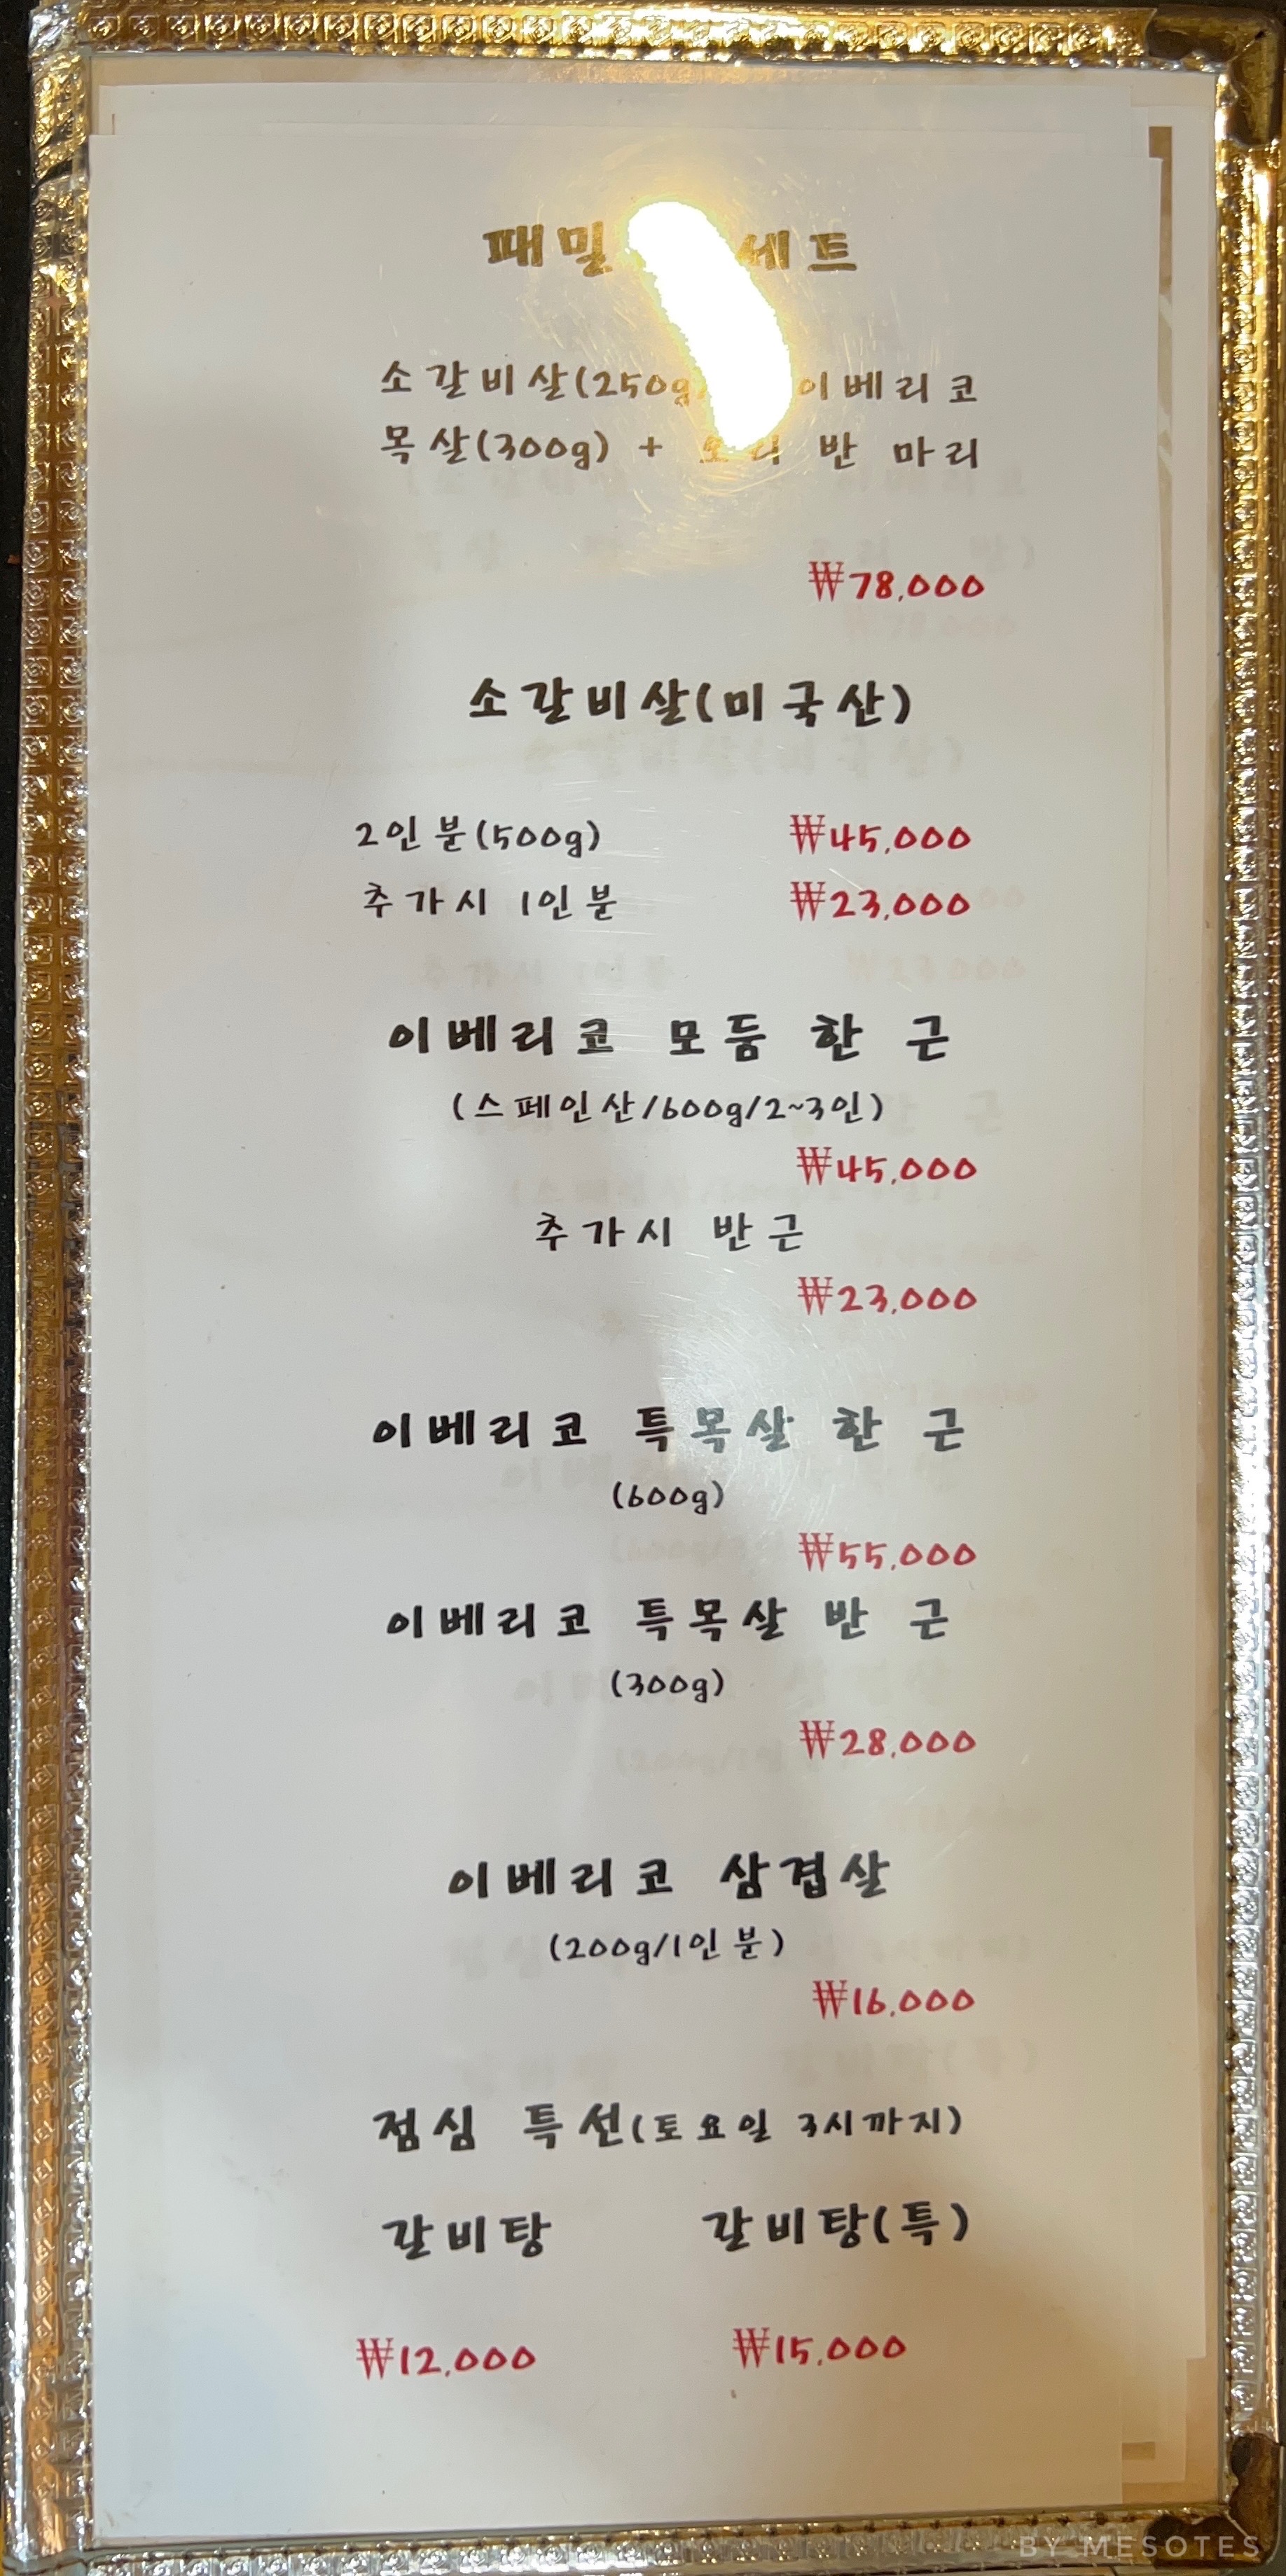 패밀 세트
소갈비살(250g 이베리코
목살(300g) + 오리 반 마리
₩78,000
소갈비살(미국산)
2인분(500g) ₩45,000
추가시 1인분 ₩23,000
이베리코 모듬 한 근
(스페인산/600g/2~3인)
₩45,000
추가시 반근
₩23,000
이베리코 특목살 한 근
(600g)
₩55,000
이베리코 특목살 반 근
(300g)
₩28,000
이베리코 삼겹살
(200g/1인분)
₩16,000
점심 특선(토요일 3시까지)
갈비탕 갈비탕(특)
₩12,000 ₩15,000
BY MESOTES